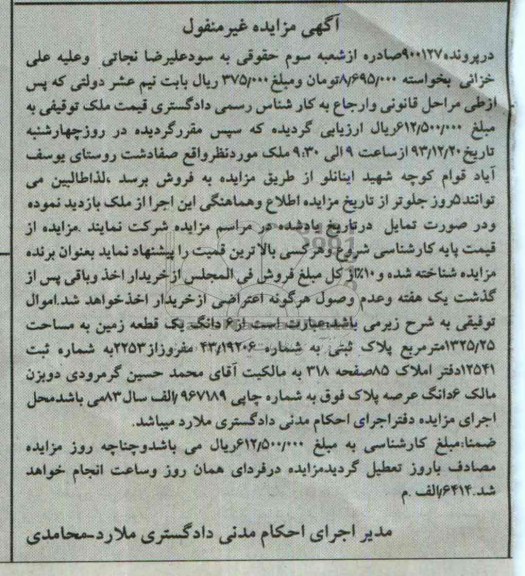 آگهی مزایده غیرمنفول
درپرونده۹۰۰۱۲۷صادره ازشعبه سوم حقوقی به سودعلیرضا نجاتی وعلیه علی
خزائی بخواسته ۸/۶۹۵/۰۰۰تومان ومبلغ۳۷۵/۰۰۰ ریال بابت نیم عشر دولتی که پس
ازطی مراحل قانونی وارجاع به کار شناس رسمی دادگستری قیمت ملک توقیفی به
مبلغ ۶۱۲/۵۰۰/۰۰۰ریال ارزیابی گردیده که سپس مقررگردیده در روزچهارشنبه
تاریخ۹۳/۱۲/۲۰ ازساعت ۹الی ۹:۳۰ ملک موردنظرواقع صفادشت روستای یوسف
آباد قوام کوچه شهید اینانلو از طریق مزایده به فروش برسد ،لذاطالبین می
توانند۵روز جلوتر از تاریخ مزایده اطلاع وهماهنگی این اجرا از ملک بازدید نموده
ودر صورت تمایل درتاریخ یادشده در مراسم مزایده شرکت نمایند .مزایده از
قیمت پایه کارشناسی شروع وهرکسی بالاترین قمیت را پیشنهاد نماید بعنوان برنده
مزایده شناخته شده و۱۰٪از کل مبلغ فروش فی المجلس ازخریدار اخذ وباقی پس از
گذشت یک هفته وعدم وصول هرگونه اعتراضی ازخریدار اخذخواهد شد.اموال
توقیفی به شرح زیرمی باشد:عبارت است از۶ دانگ یک قطعه زمین به مساحت
۱۳۲۵/۲۵مترمربع پلاک ثبتی به شماره ۴۳/۱۹۲۰۶ مفروزاز۲۲۵۳به شماره ثبت
۱۲۵۴۱دفتر املاک ۸۵صفحه ۳۱۸ به مالکیت آقای محمد حسین گرمرودی دویزن
مالک ۶دانگ عرصه پلاک فوق به شماره چاپی ۹۶۷۱۸۹/الف سال۸۳می باشدمحل
اجرای مزایده دفتراجرای احکام مدنی دادگستری ملارد میباشد.
ضمنا:مبلغ کارشناسی به مبلغ ۶۱۲/۵۰۰/۰۰۰ریال می باشدوچناچه روز مزایده
مصادف باروز تعطیل گردیدمزایده درفردای همان روز وساعت انجام خواهد
شد.۶۴۱۴/الف .م
مدیر اجرای احکام مدنی دادگستری ملارد-محامدی